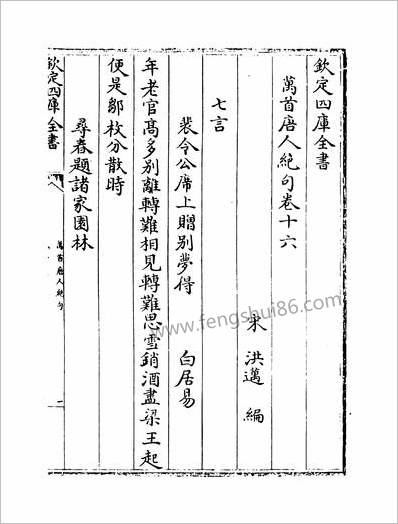 欽定四庫全書
萬首唐人絶句卷十六
宋 洪邁 編
七言
裴令公席上贈別夢得 白居易
年老官髙多別離轉難相見轉難思雪銷酒盡梁王起
便是鄒枚分散時
尋春題諸家園林
欽定四庫全書
萬首唐人絶句
www.fengshui86.com